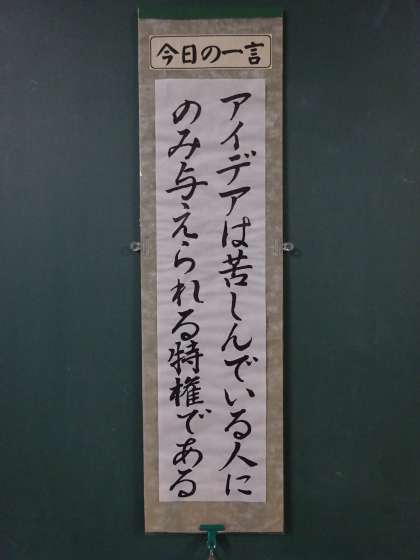 今日の一言
アイデアは苦しんでいる人に
のみ与えられる特権である